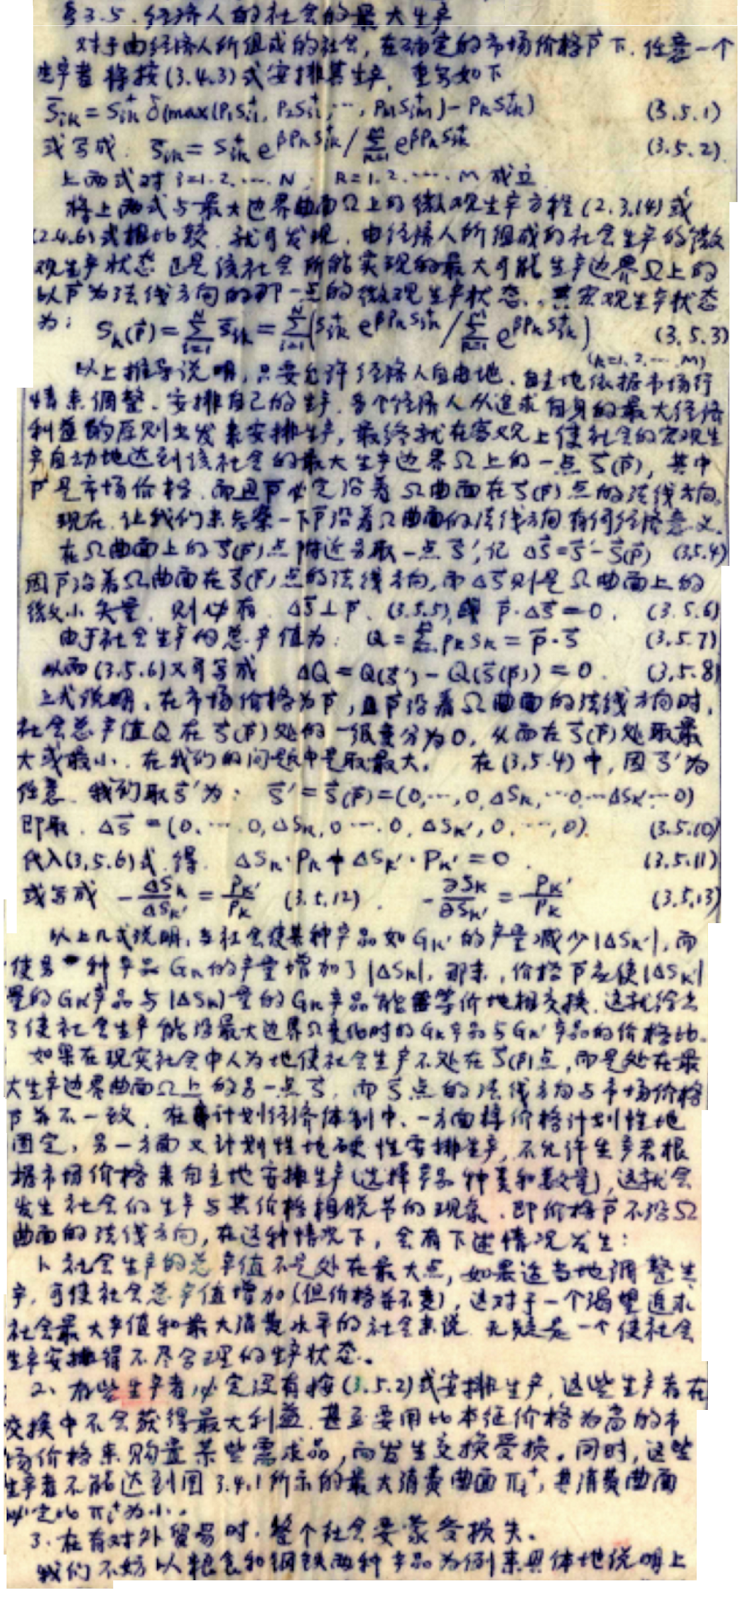 §3.5. 经济人的社会的最大生产
对于由经济人所组成的社会, 在确定的市场价格P̄下, 任意一个
生产者将按(3.4.3)式安排其生产, 重写如下
S̄ik = Sik⁺ δ(max(P₁Si1⁺, P₂Si2⁺, …, PMSiM⁺) - PkSik⁺) (3.5.1)
或写成. S̄ik = Sik⁺ e^{βPkSik⁺} / Σ_{k=1}^{M} e^{βPkSik⁺} (3.5.2)
上两式对 i=1.2.….N, k=1.2.….M 成立
将上两式与最大边界曲面Ω上的微观生产方程(2.3.14)或
(2.4.6)式相比较, 就可发现, 由经济人所组成的社会生产的微
观生产状态 已是该社会所能实现的最大可能生产边界Ω上的
以P̄为法线方向的那一点的微观生产状态, 其宏观生产状态
为: Sk(P̄) = Σ_{i=1}^{N} S̄ik = Σ_{i=1}^{N} (Sik⁺ e^{βPkSik⁺} / Σ_{k=1}^{M} e^{βPkSik⁺}) (3.5.3)
(k=1.2.…M)
以上推导说明, 只要允许经济人自由地、自主地依据市场行
情来调整、安排自己的生产, 各个经济人从追求自身的最大经济
利益的原则出发来安排生产, 最终就在客观上使社会的宏观生
产自动地达到该社会的最大生产边界Ω上的一点S̄(P̄), 其中
P̄是市场价格, 而且P̄必定沿着Ω曲面在S̄(P̄)点的法线方向。
现在, 让我们来考察一下P̄沿着Ω曲面的法线方向有何经济意义.
在Ω曲面上的S̄(P̄)点附近另取一点S̄′, 记 ΔS̄=S̄′-S̄(P̄) (3.5.4)
因P̄沿着Ω曲面在S̄(P̄)点的法线方向, 而ΔS̄则是Ω曲面上的
微小矢量, 则必有. ΔS̄⊥P̄. (3.5.5), 即 P̄·ΔS̄=0. (3.5.6)
由于社会生产的总产值为: Q = Σ PkSk = P̄·S̄ (3.5.7)
从而(3.5.6)又可写成 ΔQ = Q(S̄′) - Q(S̄(P̄)) = 0. (3.5.8)
上式说明, 在市场价格为P̄, 且P̄沿着Ω曲面的法线方向时,
社会总产值Q在S̄(P̄)处的一级变分为0, 从而在S̄(P̄)处取最
大或最小. 在我们的问题中是取最大. 在(3.5.4)中, 因S̄′为
任意. 我们取S̄′为: S̄′=S̄(P̄)=(0,…,0,ΔSk,…0…ΔSk′…0)
即取. ΔS̄ = (0.….0,ΔSk,0….0,ΔSk′,0.…,0) (3.5.10)
代入(3.5.6)式, 得. ΔSk·Pk + ΔSk′·Pk′ = 0. (3.5.11)
或写成 -ΔSk/ΔSk′ = Pk′/Pk (3.5.12). -∂Sk/∂Sk′ = Pk′/Pk (3.5.13)
以上几式说明, 当社会使某种产品如Gk′的产量减少|ΔSk′|, 而
使另一种产品Gk的产量增加了|ΔSk|, 那末, 价格P̄应使|ΔSk′|
量的Gk′产品与|ΔSk|量的Gk产品能等价地相交换. 这就给出
了使社会生产能沿最大边界Ω变化时的Gk产品与Gk′产品的价格比.
如果在现实社会中人为地使社会生产不处在S̄(P̄)点, 而是处在最
大生产边界曲面Ω上的另一点S̄, 而S̄点的法线方向与市场价格
P̄并不一致, 在计划经济体制中, 一方面将价格计划性地
固定, 另一方面又计划性地硬性安排生产, 不允许生产者根
据市场价格来自主地安排生产(选择产品种类和数量), 这就会
发生社会的生产与其价格相脱节的现象. 即价格P̄不沿Ω
曲面的法线方向, 在这种情况下, 会有下述情况发生:
1. 社会生产的总产值不是处在最大点, 如果适当地调整生
产, 可使社会总产值增加(但价格并不变), 这对于一个渴望追求
社会最大产值和最大消费水平的社会来说, 无疑是一个使社会
生产安排得不尽合理的生产状态。
2. 有些生产者必定没有按(3.5.2)式安排生产, 这些生产者在
交换中不会获得最大利益, 甚至要用比本征价格为高的市
场价格来购置某些需求品, 而发生交换受损. 同时, 这些
生产者不能达到图3.4.1所示的最大消费曲面πi⁺, 其消费曲面
必定比πi⁺为小.
3. 在有对外贸易时, 整个社会要蒙受损失.
我们不妨以粮食和钢铁两种产品为例来具体地说明上